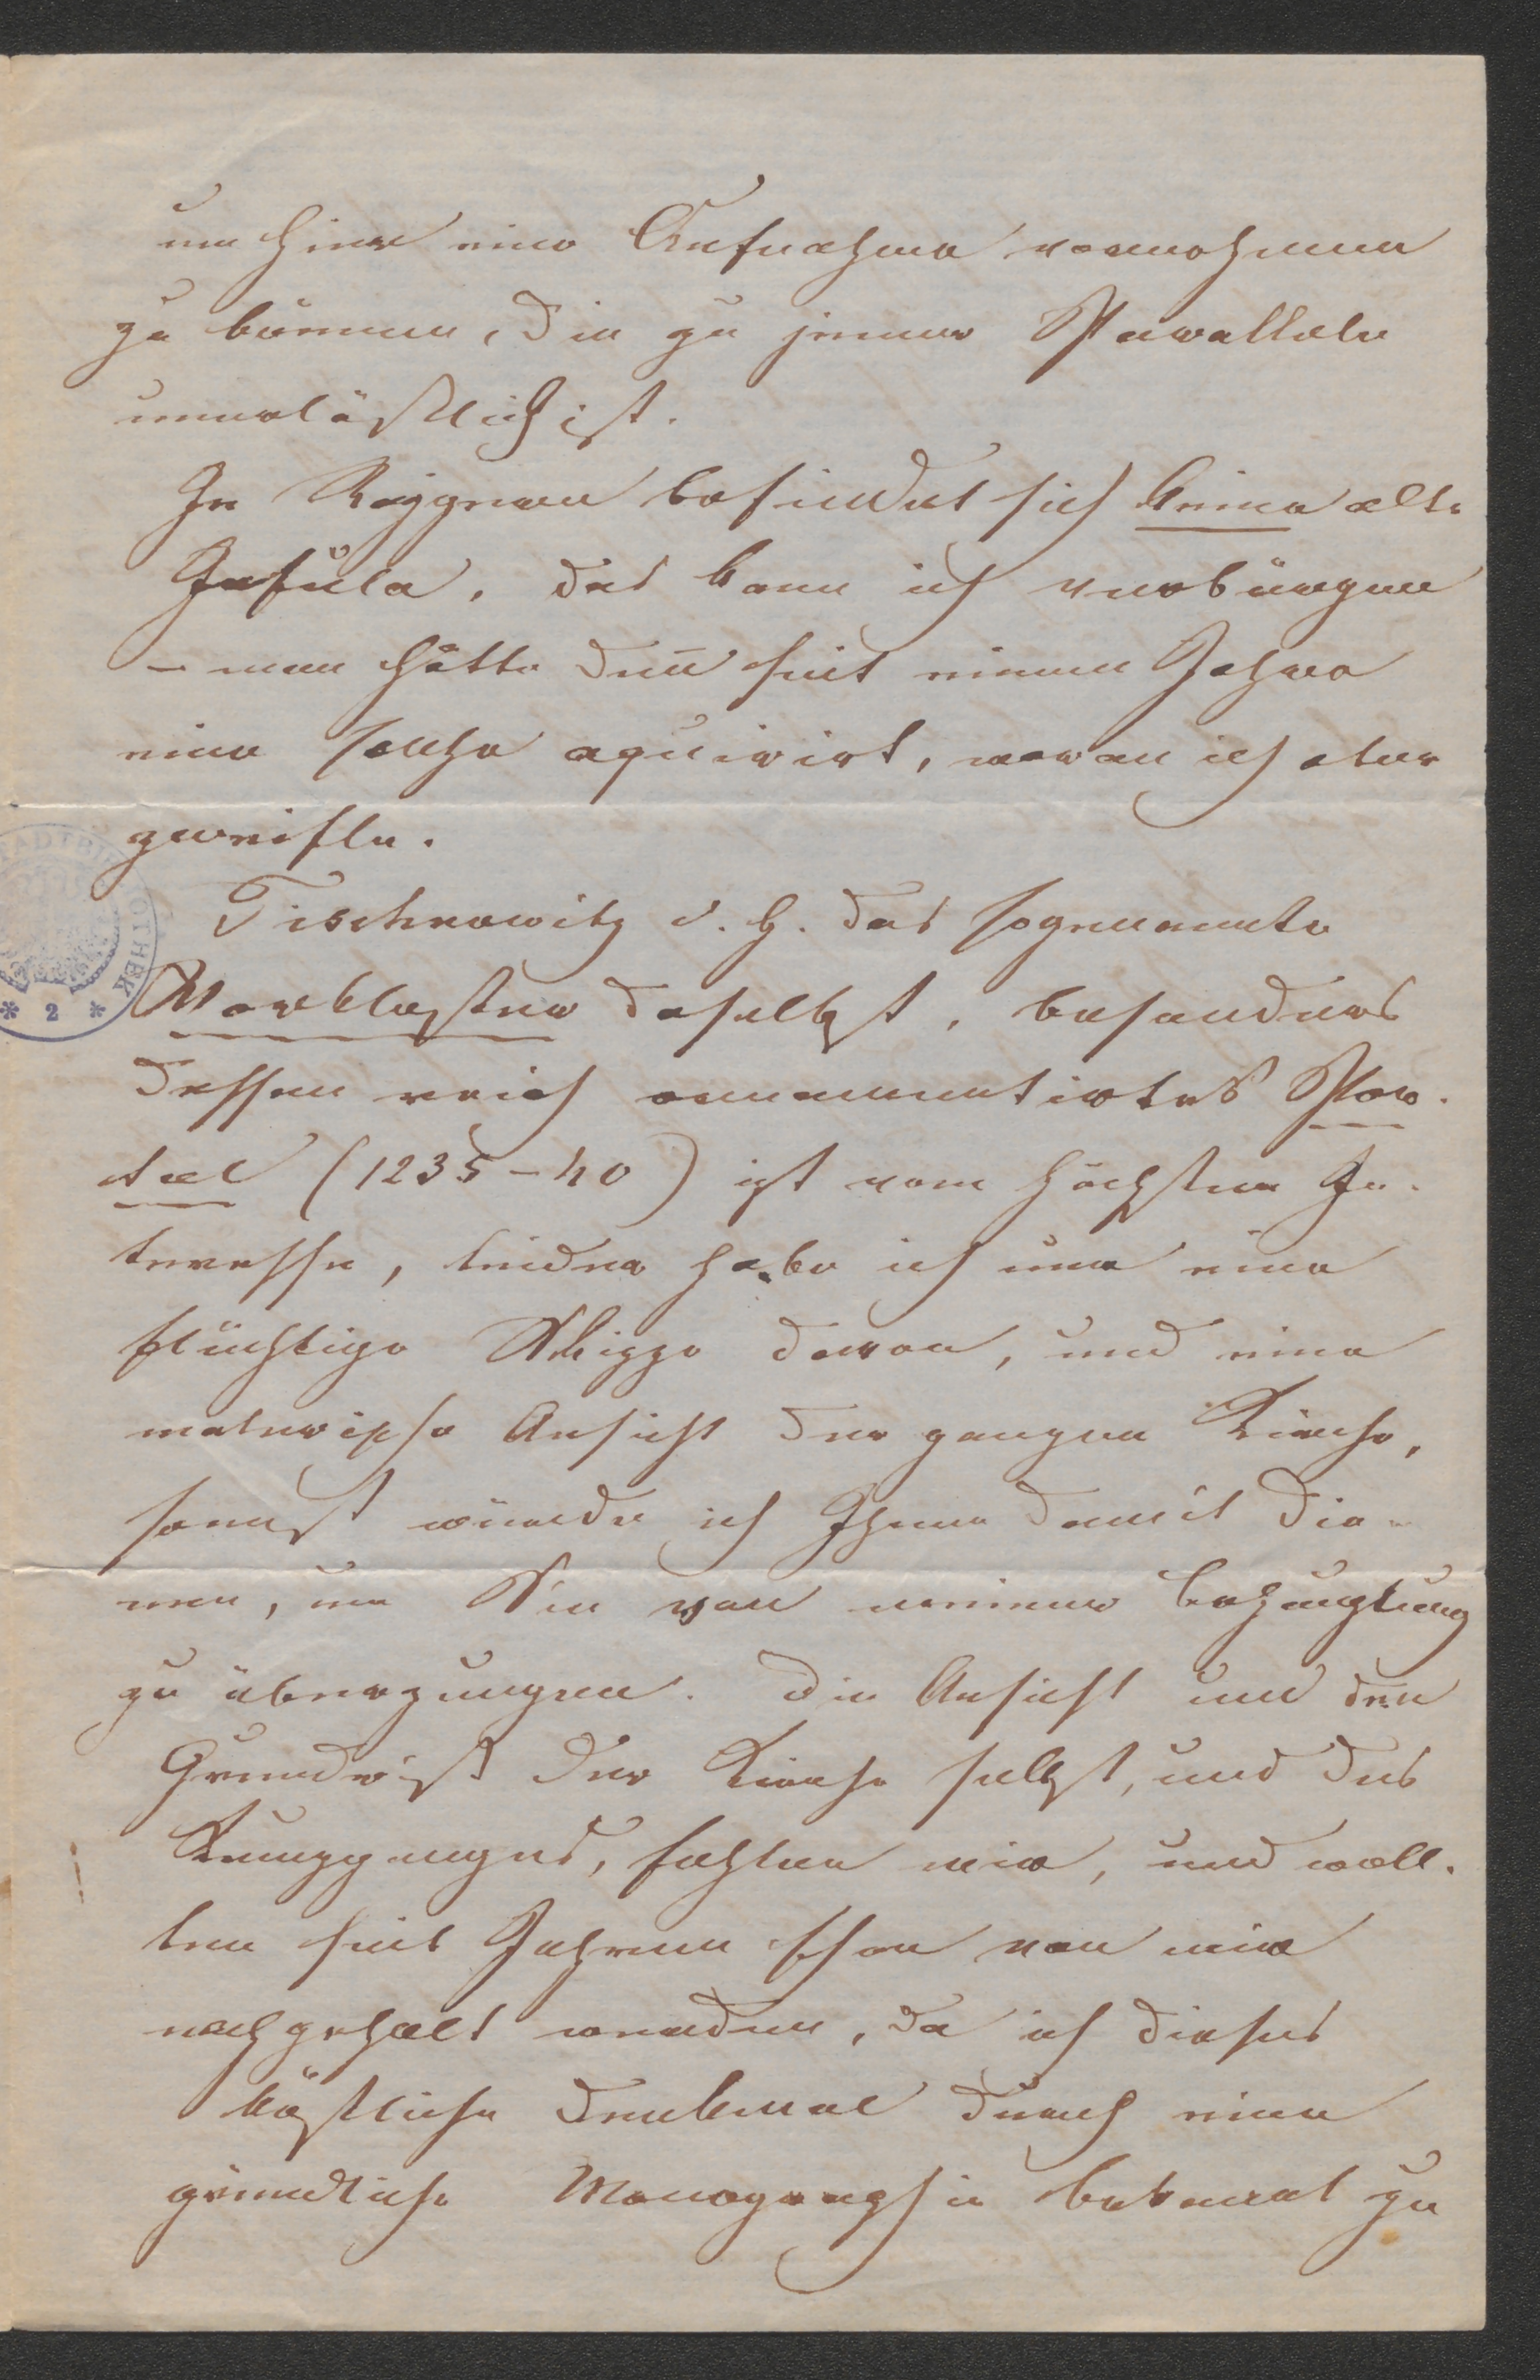 um hier eine Aufnahme vornehmen
zu können, die zu jener Parallele
unerläßlich ist.
In Raygern befindet sich keine alte
Infula, das kann ich verbürgen
– man hätte deñ seit einem Jahre
eine solche aquirirt, woran ich aber
zweifle.
Tischnowitz d. h. das sogenannte
Vorkloster daselbst, besonders
dessen reich ornamentirtes Por-
tal (1235–40) ist vom höchsten In-
teresse, leider habe ich nur eine
flüchtige Skizze davon, und eine
malerische Ansicht der ganzen Kirche,
sonst würde ich Ihnen damit die-
nen, um Sie von meiner Behauptung
zu überzeugen. Die Ansicht und den
Grundriß der Kirche selbst, und des
Kreuzganges, fehlen mir, und woll-
ten seit Jahren schon von mir
nachgeholt werden, da ich dieses
köstliche Denkmal durch eine
gründliche Monographie bekannt zu
STADTBIBLIOTHEK
* 2 *